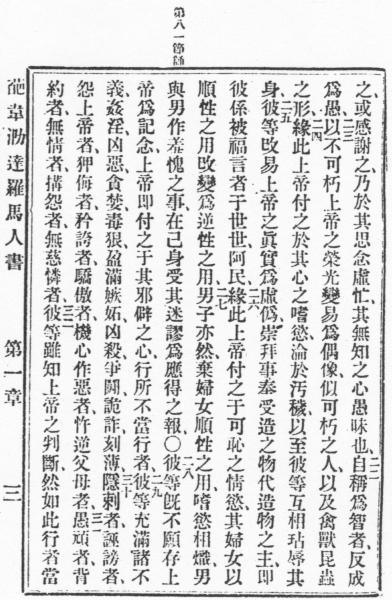 第八一節錦
之或感謝之乃於其思念虛忙其無知之心愚昧也自稱爲智者反成
二二
爲愚以不可朽上帝之榮光變易爲偶像似可朽之人以及禽獸昆蟲
二三
之形緣此上帝付之於其心之嗜慾淪於汚穢以至彼等互相玷辱其
二四
身彼等改易上帝之眞實爲虛僞崇拜事奉受造之物代造物之主即
二五
彼係被福言者于世世阿民緣此上帝付之于可恥之情慾其婦女以
二六
順性之用改變爲逆性之用男子亦然棄婦女順性之用嗜慾相熾男
二七
與男作羞愧之事在己身受其迷謬爲應得之報○彼等旣不願存上
二八
帝爲記念上帝即付之于其邪僻之心行所不當行者彼等充滿諸不
二九
義姦淫凶惡貪婪毒狠盈滿嫉妬凶殺爭鬪詭詐刻薄隱刺者誣謗者
三十
怨上帝者狎侮者矜誇者驕傲者機心作惡者忤逆父母者愚頑者背
三一
約者無情者搆怨者無慈憐者彼等雖知上帝之判斷然如此行者當
三二
葩韋泐達羅馬人書
第一章
三